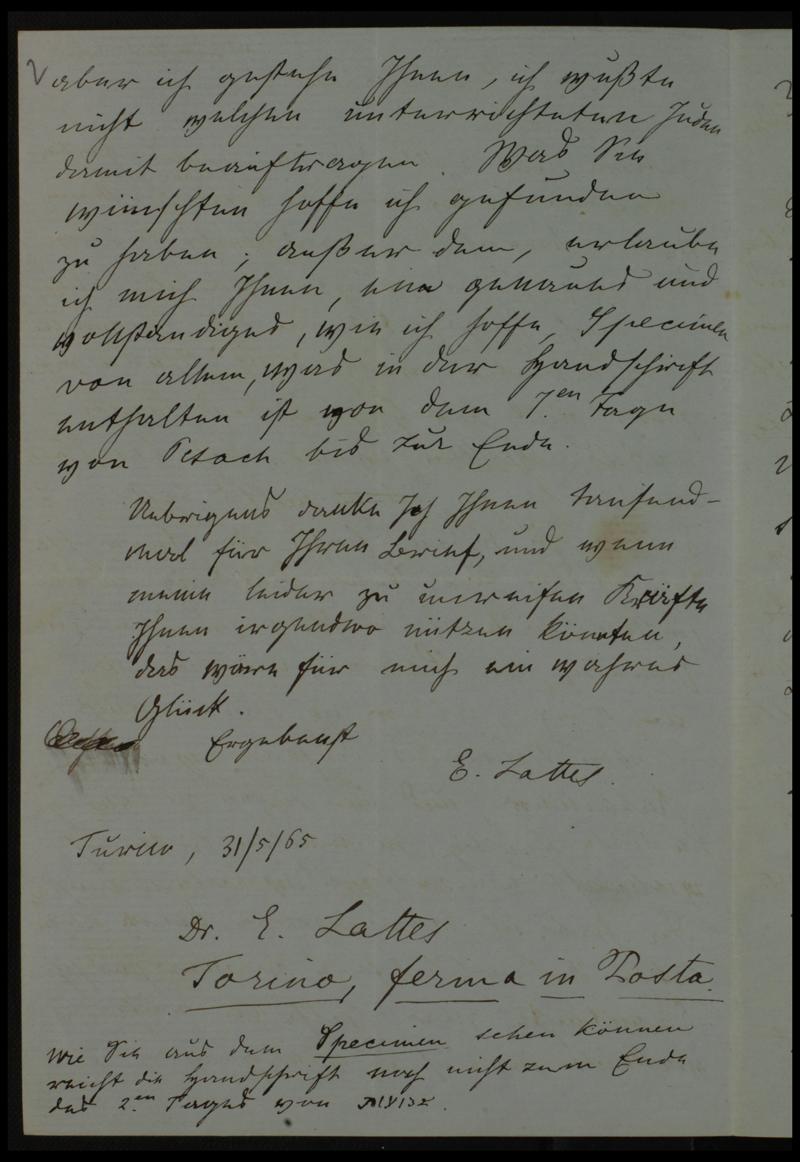 aber ich gestehe Ihnen, ich wußte
nicht welchen unterrichteten Juden
damit beauftragen. Was Sie
wünschten hoffe ich gefunden
zu haben; außer dem, erlaube
ich mich Ihnen, ein genaues und
vollständiges, wie ich hoffe, Specimen
von allem, was in der Handschrift
enthalten ist von dem 7.en Tage
von Pesach bis zur Ende.
Uebrigens danke Ich Ihnen tausend-
mal für Ihren Brief, und wenn
meine leider zu unreifen Kräfte
Ihnen irgendwo nützen könnten,
das wäre für mich ein wahres
Glück.
Ergebenst
E. Lattes.
Turino, 31/5/65
Dr. E. Lattes
Torino, ferma in Posta.
Wie Sie aus dem Specimen sehen können
reicht die Handschrift noch nicht zum Ende
des 2.en Tages von שבועות.